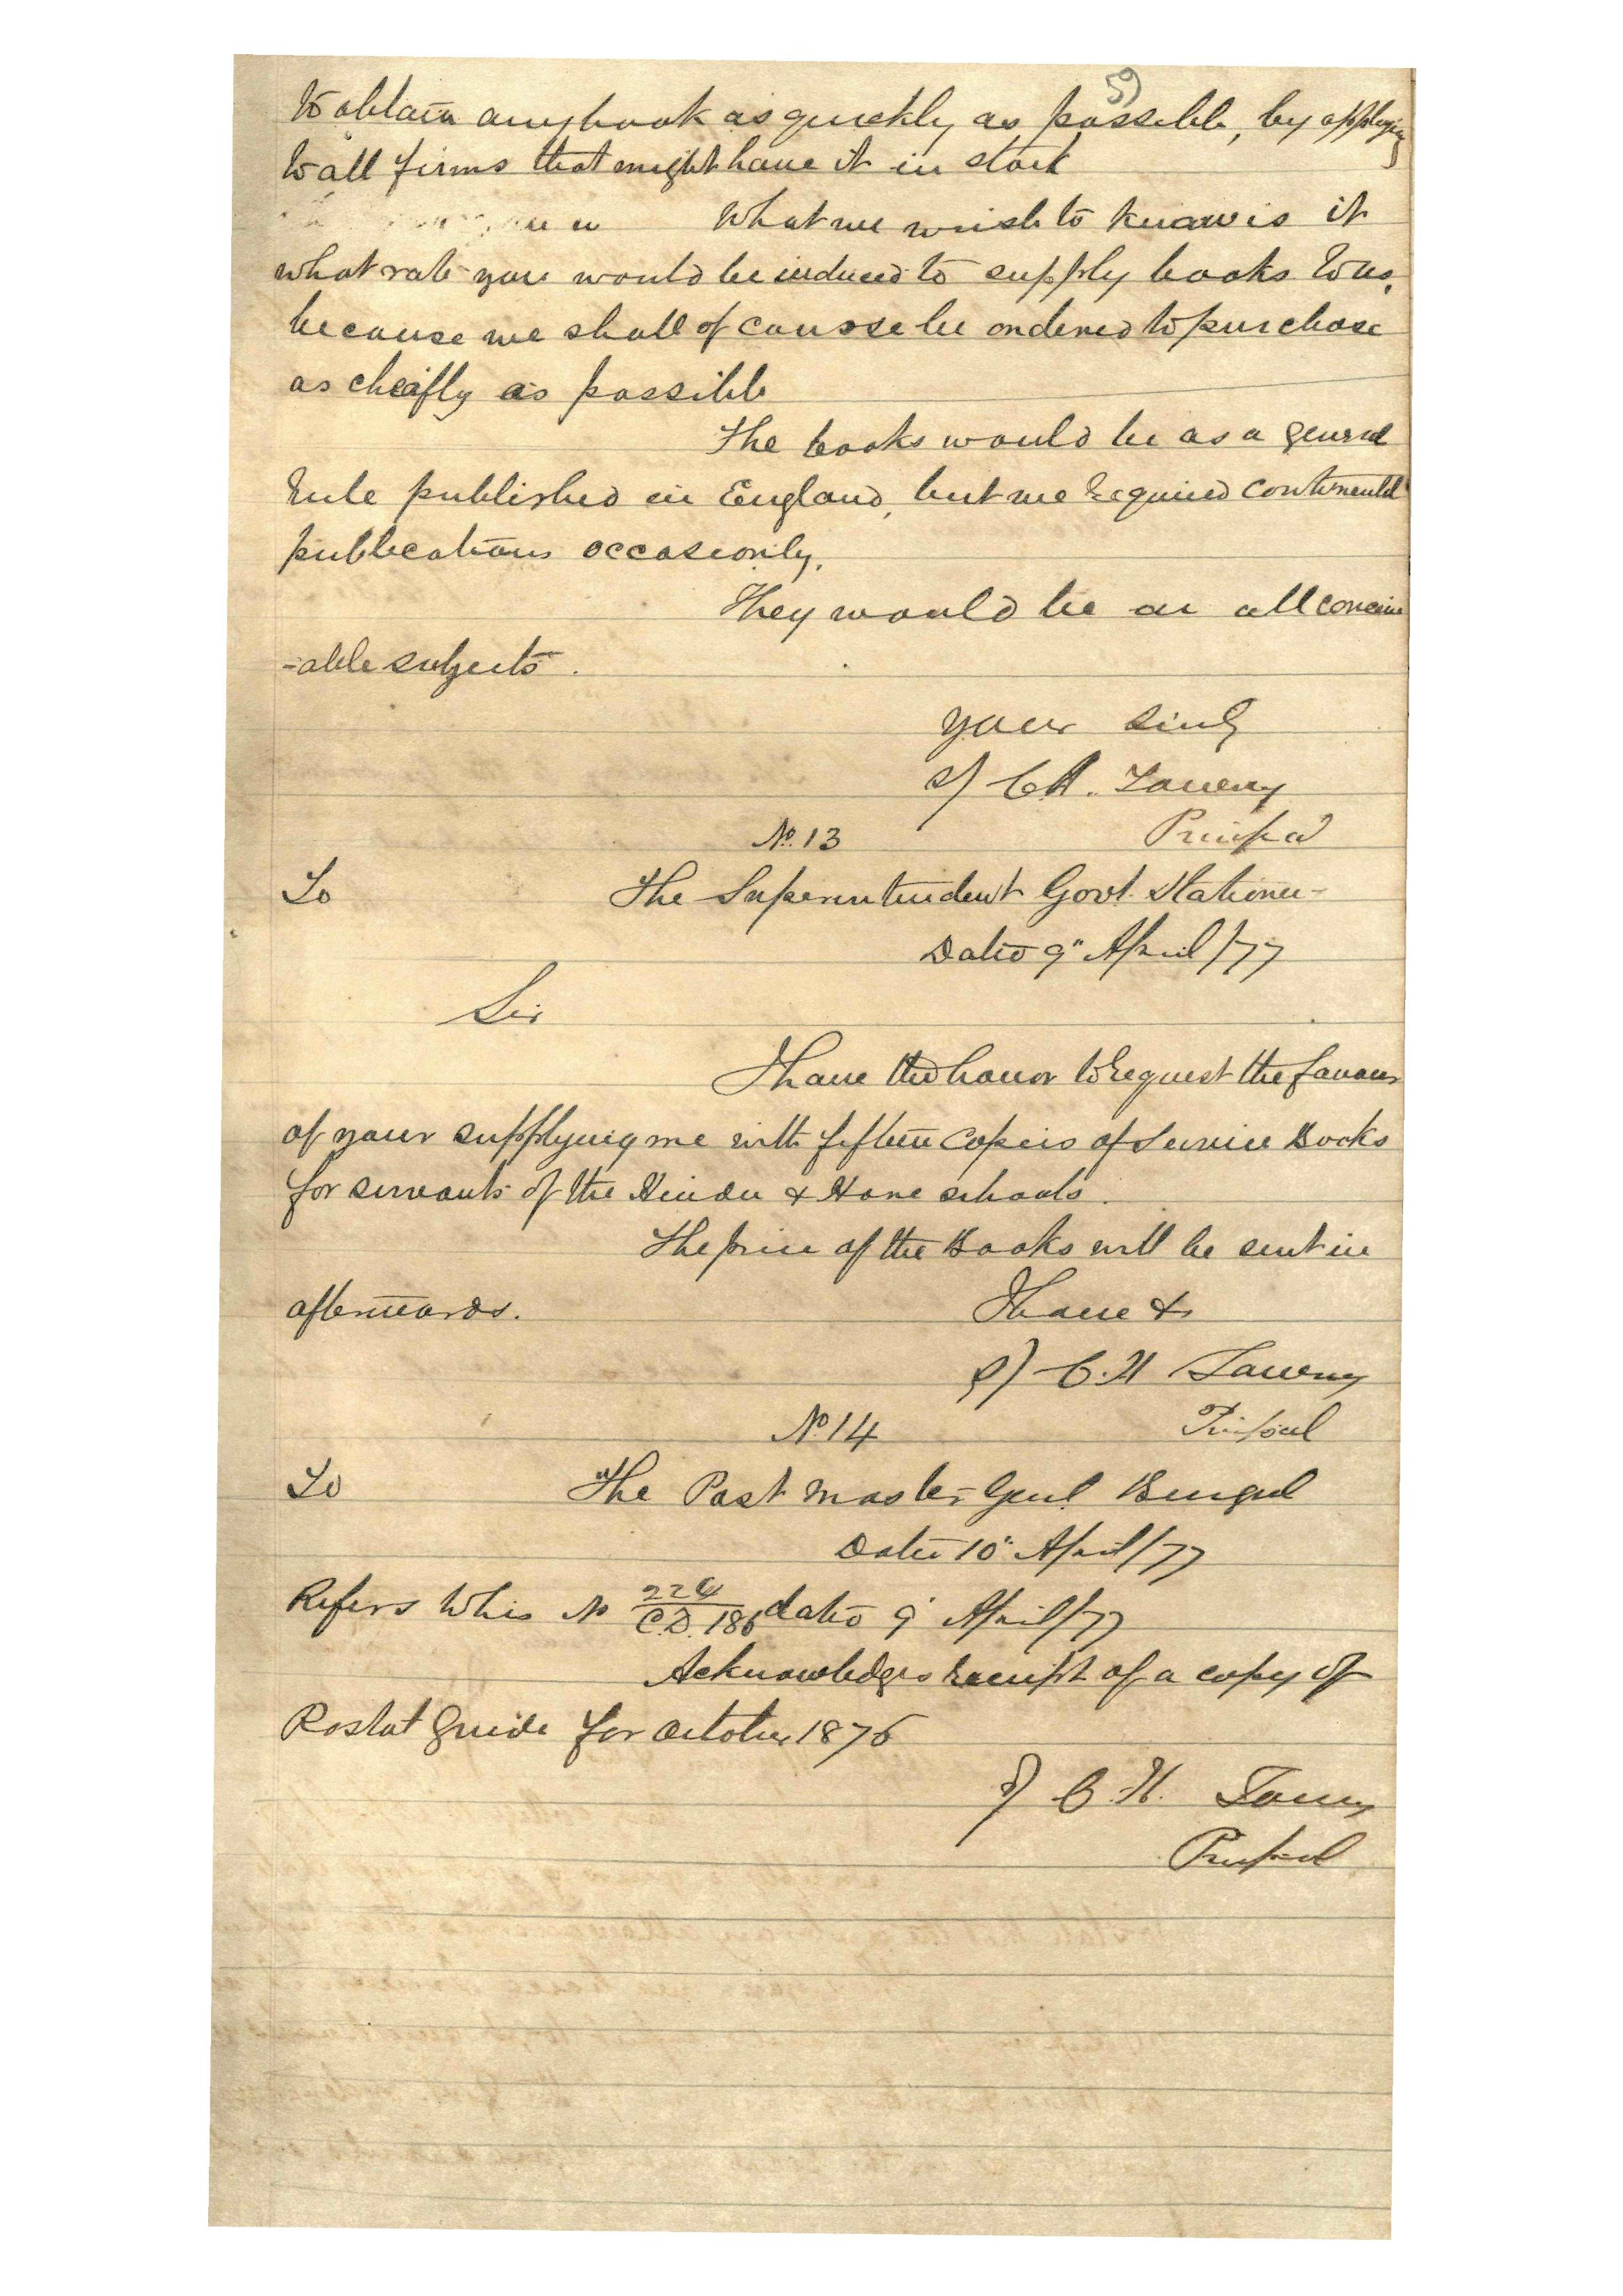 59
to obtain any book as quickly as possible, by applying
to all firms that might have it in stock
What we wish to know is it
what rate you would be induced to supply books to us,
because we shall of course be ordered to purchase
as cheaply as possible
The books would be as a general
rule published in England, but we required continental
publications occasionly.
They would be on all conceiv
-able subjects.
Your Sincly
S/ C.H. Tawney
No. 13 Principal
To The Superintendent Govt. Stationer-
Dated 9" April/77
Sir
I have the honor to request the favour
of your supplying me with fifteen Copeis of Service Books
for servants of the Hindu & Hare schools.
The price of the Books will be sent in
afterwards. I have &
S/ C.H Tawney
No 14 Principal
To The Post master Genl Bengal
Dated 10" April/77
Refers to his No 224/C.D. 186 dated 9" April/77
Acknowledges receipt of a copy of
Postal Guide for October 1876
S/ C.H. Tawney
Principal